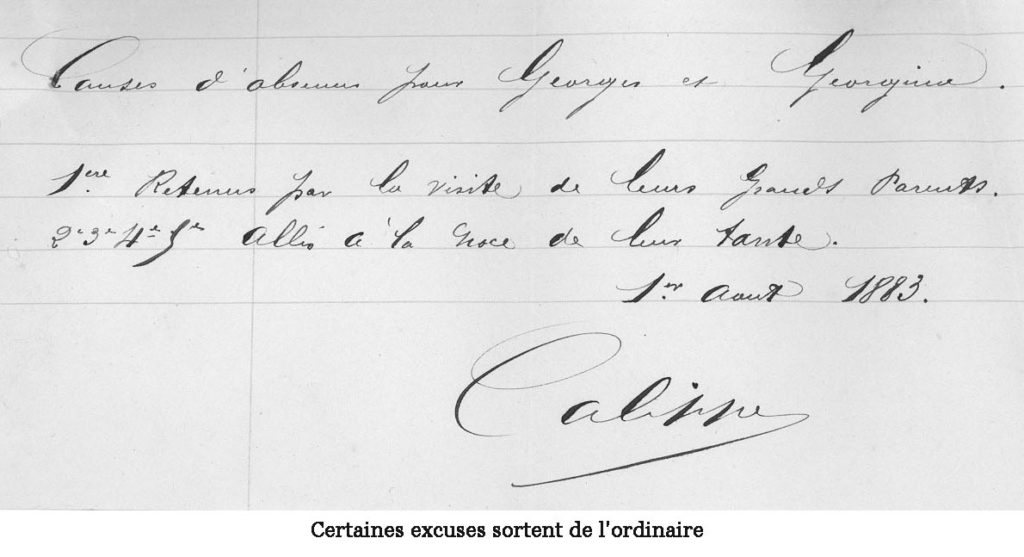 Causes d'absences pour Georges et Georgine.
1ère Retenus par la visite de leurs Grands Parents.
2e 3e 4e 5e Allés à la Noce de leur tante.
1er Aout 1883.
Calippe
Certaines excuses sortent de l'ordinaire